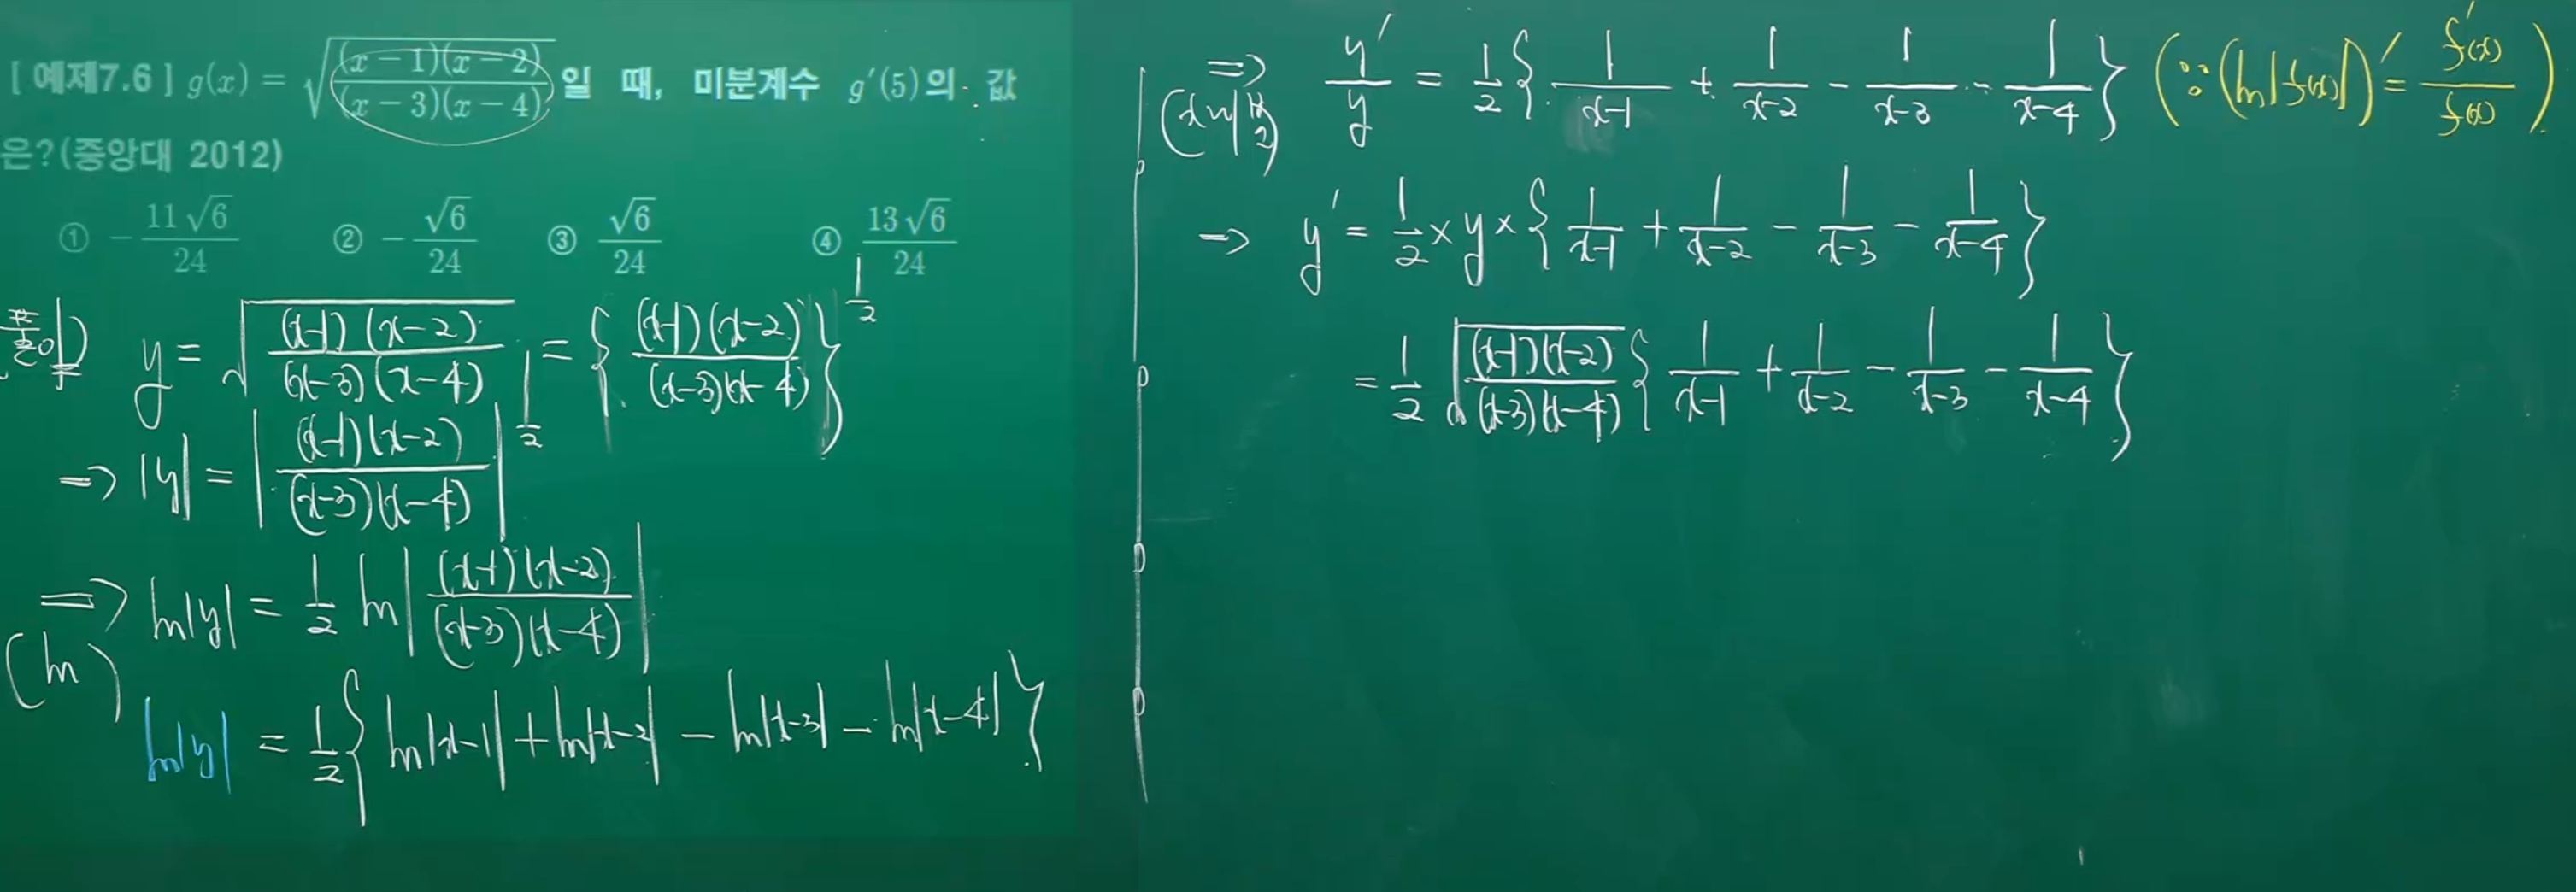 [ 예제7.6 ] g(x) = √((x − 1)(x − 2) / (x − 3)(x − 4)) 일 때, 미분계수 g′(5)의 값
은?(중앙대 2012)
① −11√6/24 ② −√6/24 ③ √6/24 ④ 13√6/24
풀이) y = √((x−1)(x−2) / (x−3)(x−4)) = {(x−1)(x−2) / (x−3)(x−4)}^(1/2)
→ |y| = |(x−1)(x−2) / (x−3)(x−4)|^(1/2)
⇒ ln|y| = 1/2 ln|(x−1)(x−2) / (x−3)(x−4)|
(ln)
ln|y| = 1/2 {ln|x−1| + ln|x−2| − ln|x−3| − ln|x−4|}
⇒ y′/y = 1/2 {1/(x−1) + 1/(x−2) − 1/(x−3) − 1/(x−4)} (∵ (ln|f(x)|)′ = f′(x)/f(x))
→ y′ = 1/2 × y × {1/(x−1) + 1/(x−2) − 1/(x−3) − 1/(x−4)}
= 1/2 √((x−1)(x−2) / (x−3)(x−4)) {1/(x−1) + 1/(x−2) − 1/(x−3) − 1/(x−4)}